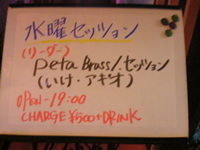 水曜セッション
(リーダー)
peta Brass/.セッション
(いけ・アキオ)
OPEN-19:00
CHARGE ¥500+DRINK